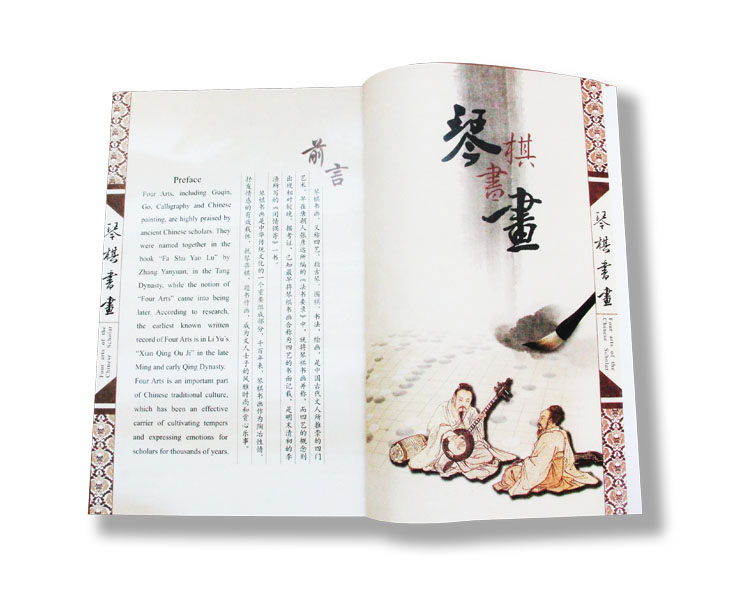 琴棋書畫
Four arts of the
Chinese Scholar
Preface
Four Arts, including Guqin,
Go, Calligraphy and Chinese
painting, are highly praised by
ancient Chinese scholars. They
were named together in the
book "Fa Shu Yao Lu" by
Zhang Yanyuan, in the Tang
Dynasty, while the notion of
"Four Arts" came into being
later. According to research,
the earliest known written
record of Four Arts is in Li Yu's
"Xian Qing Ou Ji" in the late
Ming and early Qing Dynasty.
Four Arts is an important part
of Chinese traditional culture,
which has been an effective
carrier of cultivating tempers
and expressing emotions for
scholars for thousands of years.
前言
琴棋书画,又称四艺,指古琴、围棋、书法、绘画,是中国古代文人所推崇的四门
艺术。早在唐朝人张彦远所编的《法书要录》中,就将琴棋书画并称,而四艺的概念则
出现相对较晚。据考证,已知最早将琴棋书画合称为四艺的书面记载,是明末清初的李
渔所写的《闲情偶寄》一书。
琴棋书画是中华传统文化的一个重要组成部分,千百年来,琴棋书画作为陶冶性情、
抒发情感的有效载体,书作画,成为文人士子的风雅时尚和赏心乐事。
琴棋書畫
琴棋書畫
Four arts of the
Chinese Scholar